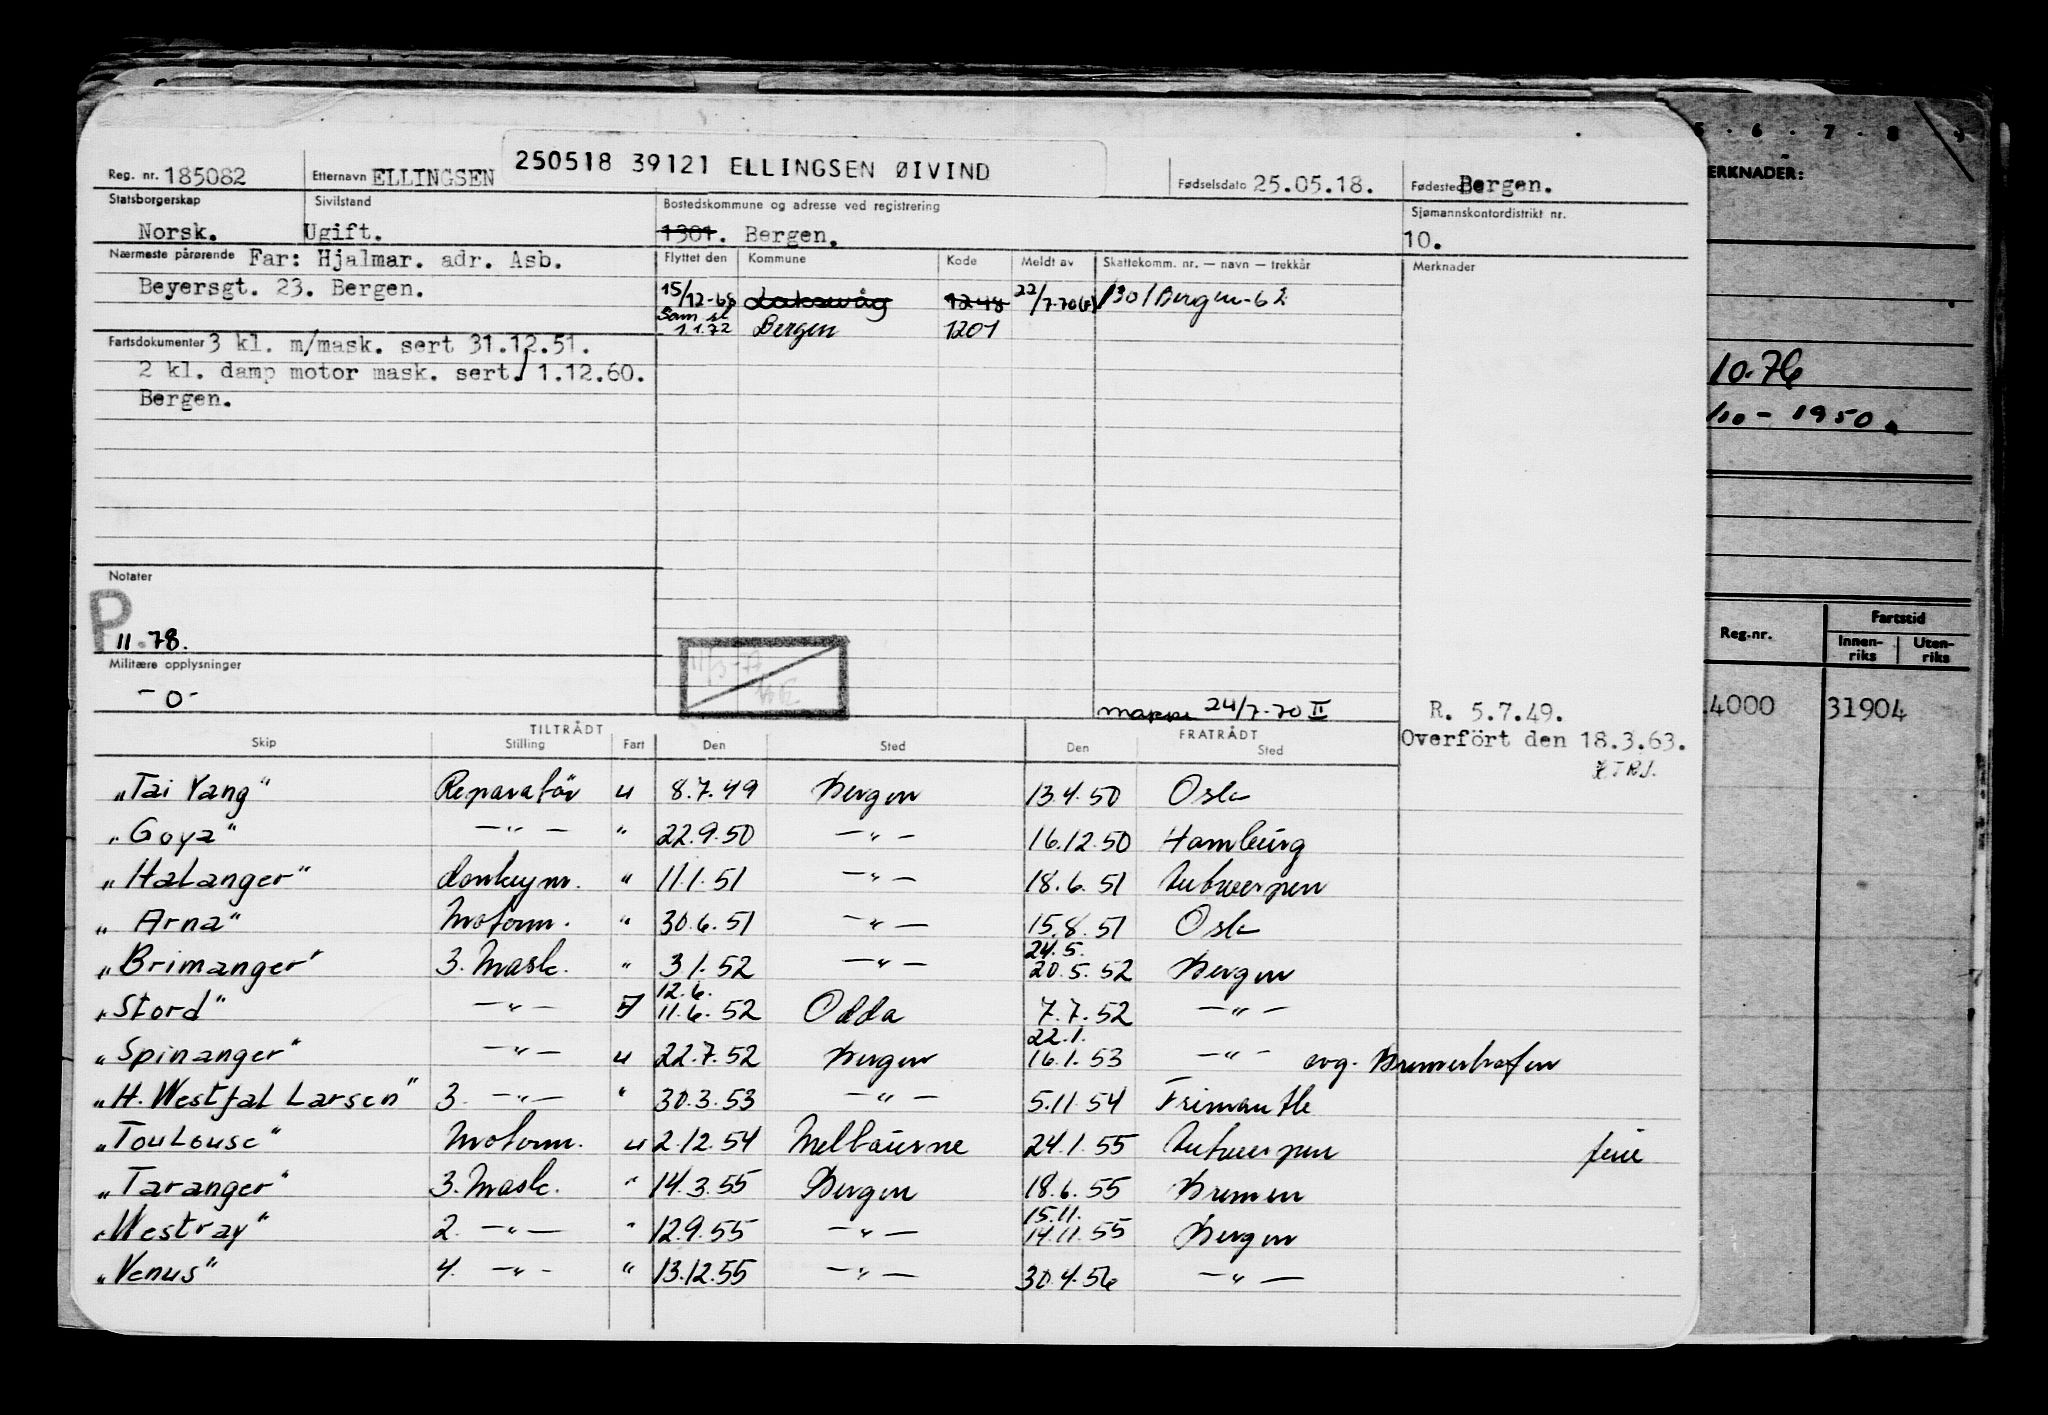 5 · 6 · 7 · 8 · 9
250518 39121 ELLINGSEN ØIVIND
Reg. nr. 185082 Etternavn ELLINGSEN Fødselsdato 25.05.18. Fødested Bergen.
Statsborgerskap Sivilstand Bostedskommune og adresse ved registrering Sjømannskontordistrikt nr.
Norsk. Ugift. 1301. Bergen. 10.
Nærmeste pårørende Far: Hjalmar. adr. Asb. Flyttet den Kommune Kode Meldt av Skattekomm. nr. — navn — trekkår Merknader
Beyersgt. 23. Bergen. 15/12-68 Laksevåg 1248 22/7-70 1301 Bergen-62
1.1.72 Bergen 1201
Fartsdokumenter 3 kl. m/mask. sert 31.12.51.
2 kl. damp motor mask. sert. 1.12.60.
Bergen.
Notater
P
11.78.
Militære opplysninger
-0-
mappe 24/7-70 II R. 5.7.49.
Overfört den 18.3.63.
TILTRÅDT FRATRÅDT
Skip Stilling Fart Den Sted Den Sted
"Tai Yang" Reparatör u 8.7.49 Bergen 13.4.50 Oslo
"Goya" —"— " 22.9.50 —"— 16.12.50 Hamburg
"Halanger" donkeym. " 11.1.51 —"— 18.6.51 Antwerpen
"Arna" Motorm. " 30.6.51 —"— 15.8.51 Oslo
24.5.
"Brimanger" 3. Mask. " 3 1.52 —"— 20.5.52 Bergen
12.6.
"Stord" —"— 11.6.52 Odda 7.7.52 —"—
22.1.
"Spinanger" —"— u 22.7.52 Bergen 16.1.53 —"— avg. Bremerhafen
"H. Westfal Larsen" 3. —"— " 30.3.53 —"— 5.11.54 Frimantle
"Toulouse" Motorm. u 2.12.54 Melbourne 24.1.55 Antwerpen
"Taranger" 3. Mask. " 14.3.55 Bergen 18.6.55 Bremen
15.11.
"Westray" 2. —"— " 12.9.55 —"— 14.11.55 Bergen
"Venus" 4. —"— " 13.12.55 —"— 30.4.56 —"—
ERKNADER:
10.76
/10 - 1950.
Reg.-nr. Fartstid
Innen-riks Uten-riks
4000 31904